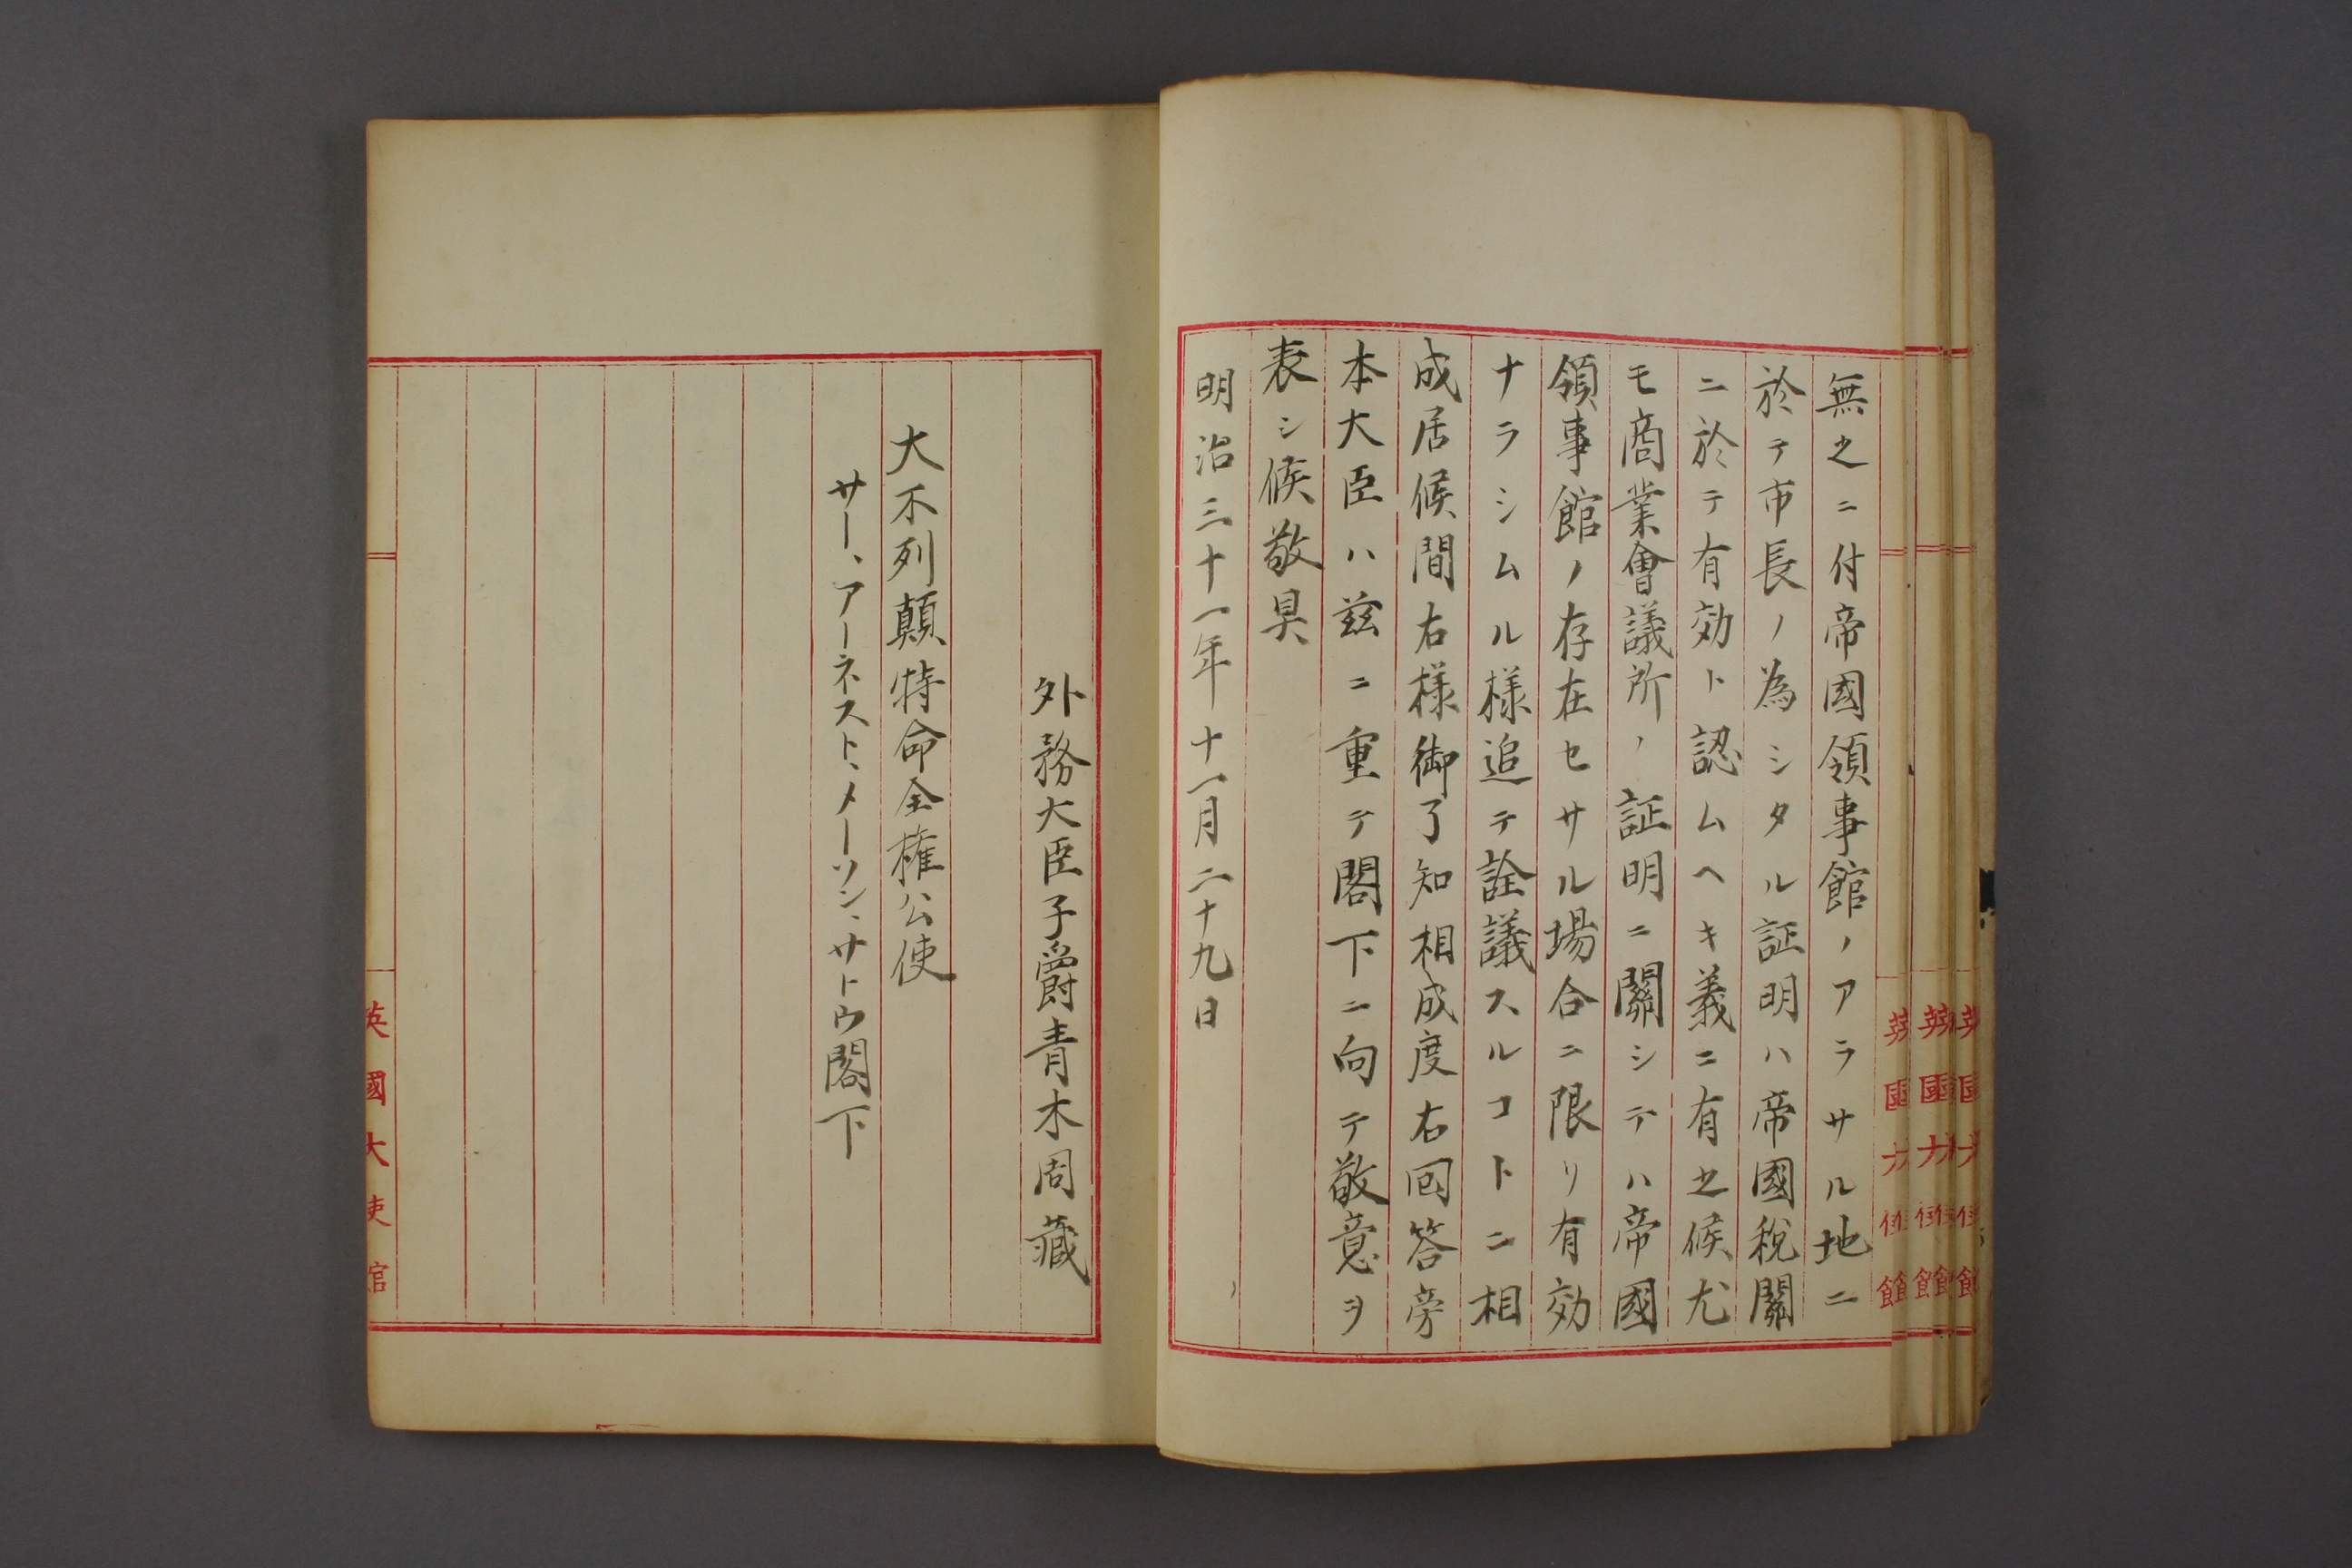 無之ニ付帝國領事館ノアラサル地ニ
於テ市長ノ為シタル証明ハ帝國税關
ニ於テ有効ト認ムヘキ義ニ有之候尤
モ商業會議所ノ証明ニ關シテハ帝國
領事館ノ存在セサル場合ニ限リ有効
ナラシムル様追テ詮議スルコトニ相
成居候間右様御了知相成度右回答旁
本大臣ハ玆ニ重テ閣下ニ向テ敬意ヲ
表シ候敬具
明治三十一年十一月二十九日
外務大臣子爵青木周藏
大不列顛特命全権公使
サー、アーネスト、メーソン、サトウ閣下
英國大使館